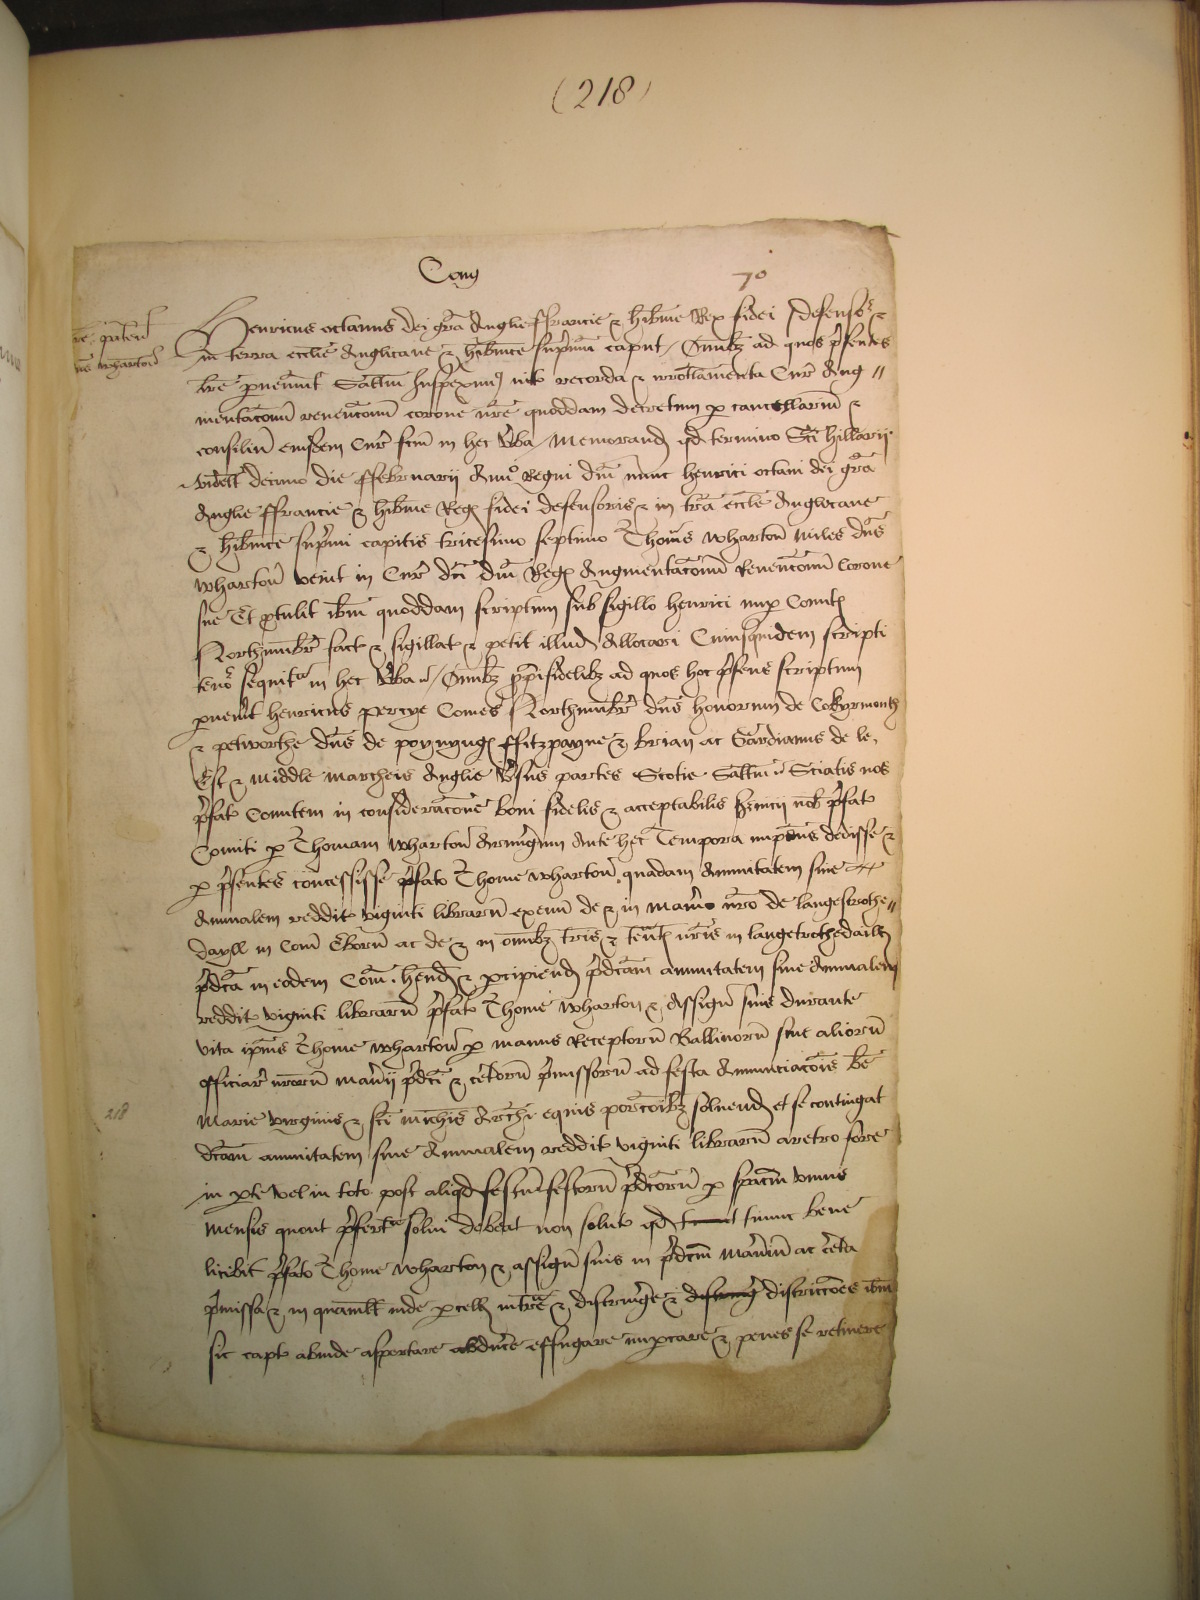 (218)
Cong
70
Henricus octavus dei gr̃a Anglie ffrancie & hib̃nie Rex fidei Defensor &
in terra ecclie Anglicane & hib̃nice sup̃mu caput Om̃ibȝ ad quos p̃sentes
lr̃e p̃venerint Sal̃tm Inspeximꝰ int̃ recorda & irrotlamenta Cur̃ Aug //
mentac̃onũ revenc̃onũ corone nr̃e quoddam decretum p cancellariũ &
consiliũ eiusdem Cur̃ fc̃m in hec v̾ba / Memorand qd termino Sc̃i hillarij
videlt decimo die ffebruarij Annͦ Regni Dñi nunc henrici octavi dei gr̃a
Anglie ffrancie & hib̃nie Regꝭ fidei defensoris & in tr̃a ecclie Anglicane
& hib̃nice sup̃mi capitis tricesimo septimo Thom̃s Wharton Miles dñs
Wharton venit in Cur̃ dc̃i Dñi Regꝭ Augmentac̃onũ Revenc̃onũ Corone
sue Et ptulit ib̃m quoddam scriptum sub sigillo henrici nup Comitꝭ
Northumbr̃ fact & sigillat & petit illud Allocari Cuiusquidem scripti
tenor sequitʳ in hec v̾ba // Om̃ibȝ xp̃ifidelibȝ ad quos hoc p̃sens scriptum
pven̾it henricus percye Comes Northumbr̃ dñs honorum de Cokyrmouth
& petworthe dñs de poynyngꝭ ffitzpayne & brian ac Gardianus de le
Est & Middle Marcheis Anglie v̾sus partes Scotie Sal̃tm Sciatis nos
p̃fat Comitem in considerac̃one boni fidelis & acceptabilis s̃vicij nob̃ p̃fat
Comiti p Thomam Wharton Armig̃um Ante hec Tempora impens̃ dedisse &
p p̃sentes concessisse p̃fato Thome Wharton quadam Annuitatem sive
Annualem reddit viginti librarũ exeuñ de & in Man̾io nr̃o de langestrothe //
dayll in Com̃ Eborũ ac de & in om̃ibȝ tr̃is & teñtꝭ nr̃is in langestrothedaill
p̃dc̃a in eodem Com̃. hend̃ & pcipiend̃ p̃dc̃am annuitatem sive Annualem
reddit viginti librarũ p̃fat Thome Wharton & Assigñ suis durante
vita ip̃ius Thome Wharton p manus Receptorũ Ballivorũ sive aliorũ
officiar̃ nr̃orũ Man̾ij p̃dc̃i & cet̾orũ p̃missorũ ad festa Annunciac̃ois be
Marie virginis & sc̃i mich̃is Arch̃i equis porc̃onibȝ solvend̃ et si contingat
218
dc̃am annuitatem sive Annualem reddit viginti librarũ aretro fore
in pte vel in toto post aliqd̃ festũ festorũ p̃dc̃orũ p spaciũ unius
Mensis quout p̃fertʳ solvi debeat non solut qd tunc bene
licebit p̃fato Thome Wharton & assigñ suis in p̃dc̃m Man̾iũ ac cet̾a
p̃missa & in quamlt inde pcell intr̃are & distring̾e & districc̃ones ib̃m
sic capt abinde asportare abduc̾e effugare impcare & penes se retinere